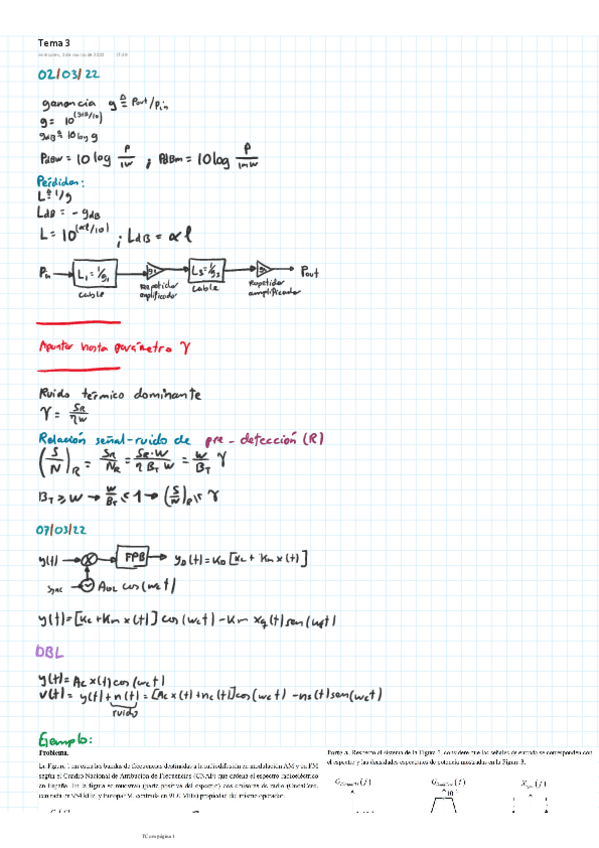 Tema 3
miércoles, 2 de marzo de 2022
02/03/22
ganancia g ≜ Pout/Pin
g = 10^(gdB/10)
gdB ≜ 10 log g
PdBW = 10 log P/1W ; PdBm = 10 log P/1mW
Pérdidas:
L ≜ 1/g
LdB = - gdB
L = 10^(αl/10) ; LdB = αl
Pin L1 = 1/g1 g2 L3 = 1/g3 g4 Pout
cable Repetidor amplificador cable Repetidor amplificador
Apuntar hasta parámetro γ
Ruido térmico dominante
γ = SR/ηW
Relación señal-ruido de pre-detección (R)
(S/N)R = SR/NR = SR·W/η BT W = W/BT γ
BT ≥ W → W/BT ≤ 1 → (S/N)R ≤ γ
07/03/22
y(t) → X → FPB → yD(t) = KD [Kc + Km x(t)]
Sync AOL cos(wct)
y(t) = [Kc + Km x(t)] cos(wct) - Km xq(t) sen(wct)
DBL
y(t) = Ac x(t) cos(wct)
v(t) = y(t) + n(t) = [Ac x(t) + nc(t)] cos(wct) - ns(t) sen(wct)
ruido
Ejemplo:
Problema.
La Figura 1 muestra las bandas de frecuencias destinadas a la radiodifusión en modulación AM y en FM
según el Cuadro Nacional de Atribución de Frecuencias (CNAF) que ordena el espectro radioeléctrico
en España. En la figura se muestran (parte positiva del espectro) dos emisoras de radio
propiedad del mismo operador.
Parte A. Respecto al sistema de la Figura 2, considere que las señales de entrada se corresponden con
el espectro y las densidades espectrales de potencia mostradas en la Figura 3.